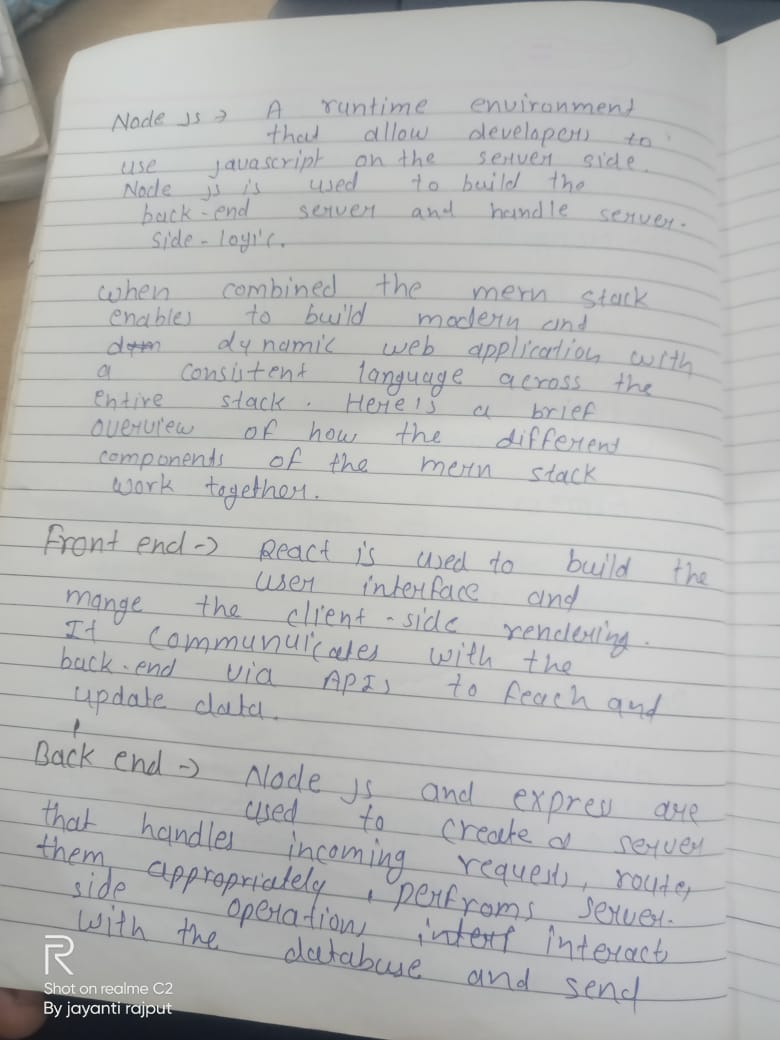 Node js → A runtime environment
that allow developers to
use javascript on the server side.
Node js is used to build the
back-end server and handle server-
side-logic.
when combined the mern stack
enables to build modern and
dynamic web application with
a consistent language across the
entire stack. Here is a brief
overview of how the different
components of the mern stack
work together.
Front end → React is used to build the
user interface and
mange the client-side rendering.
It communuicates with the
back-end via APIs to feach and
update data.
Back end → Node js and express are
used to create a server
that handles incoming requests, routes
them appropriately, perfroms server-
side operations, interact
with the database and send
R
Shot on realme C2
By jayanti rajput